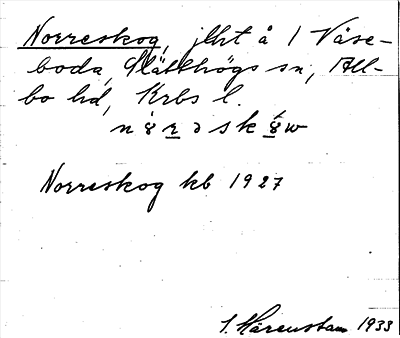 Norreskog, jlht å 1 Våse-
boda, Slätthögs sn, All-
bo hd, Krbs l.
n ȯ r ə s k ȯ w
Norreskog kb 1927
S. Härenstam 1933